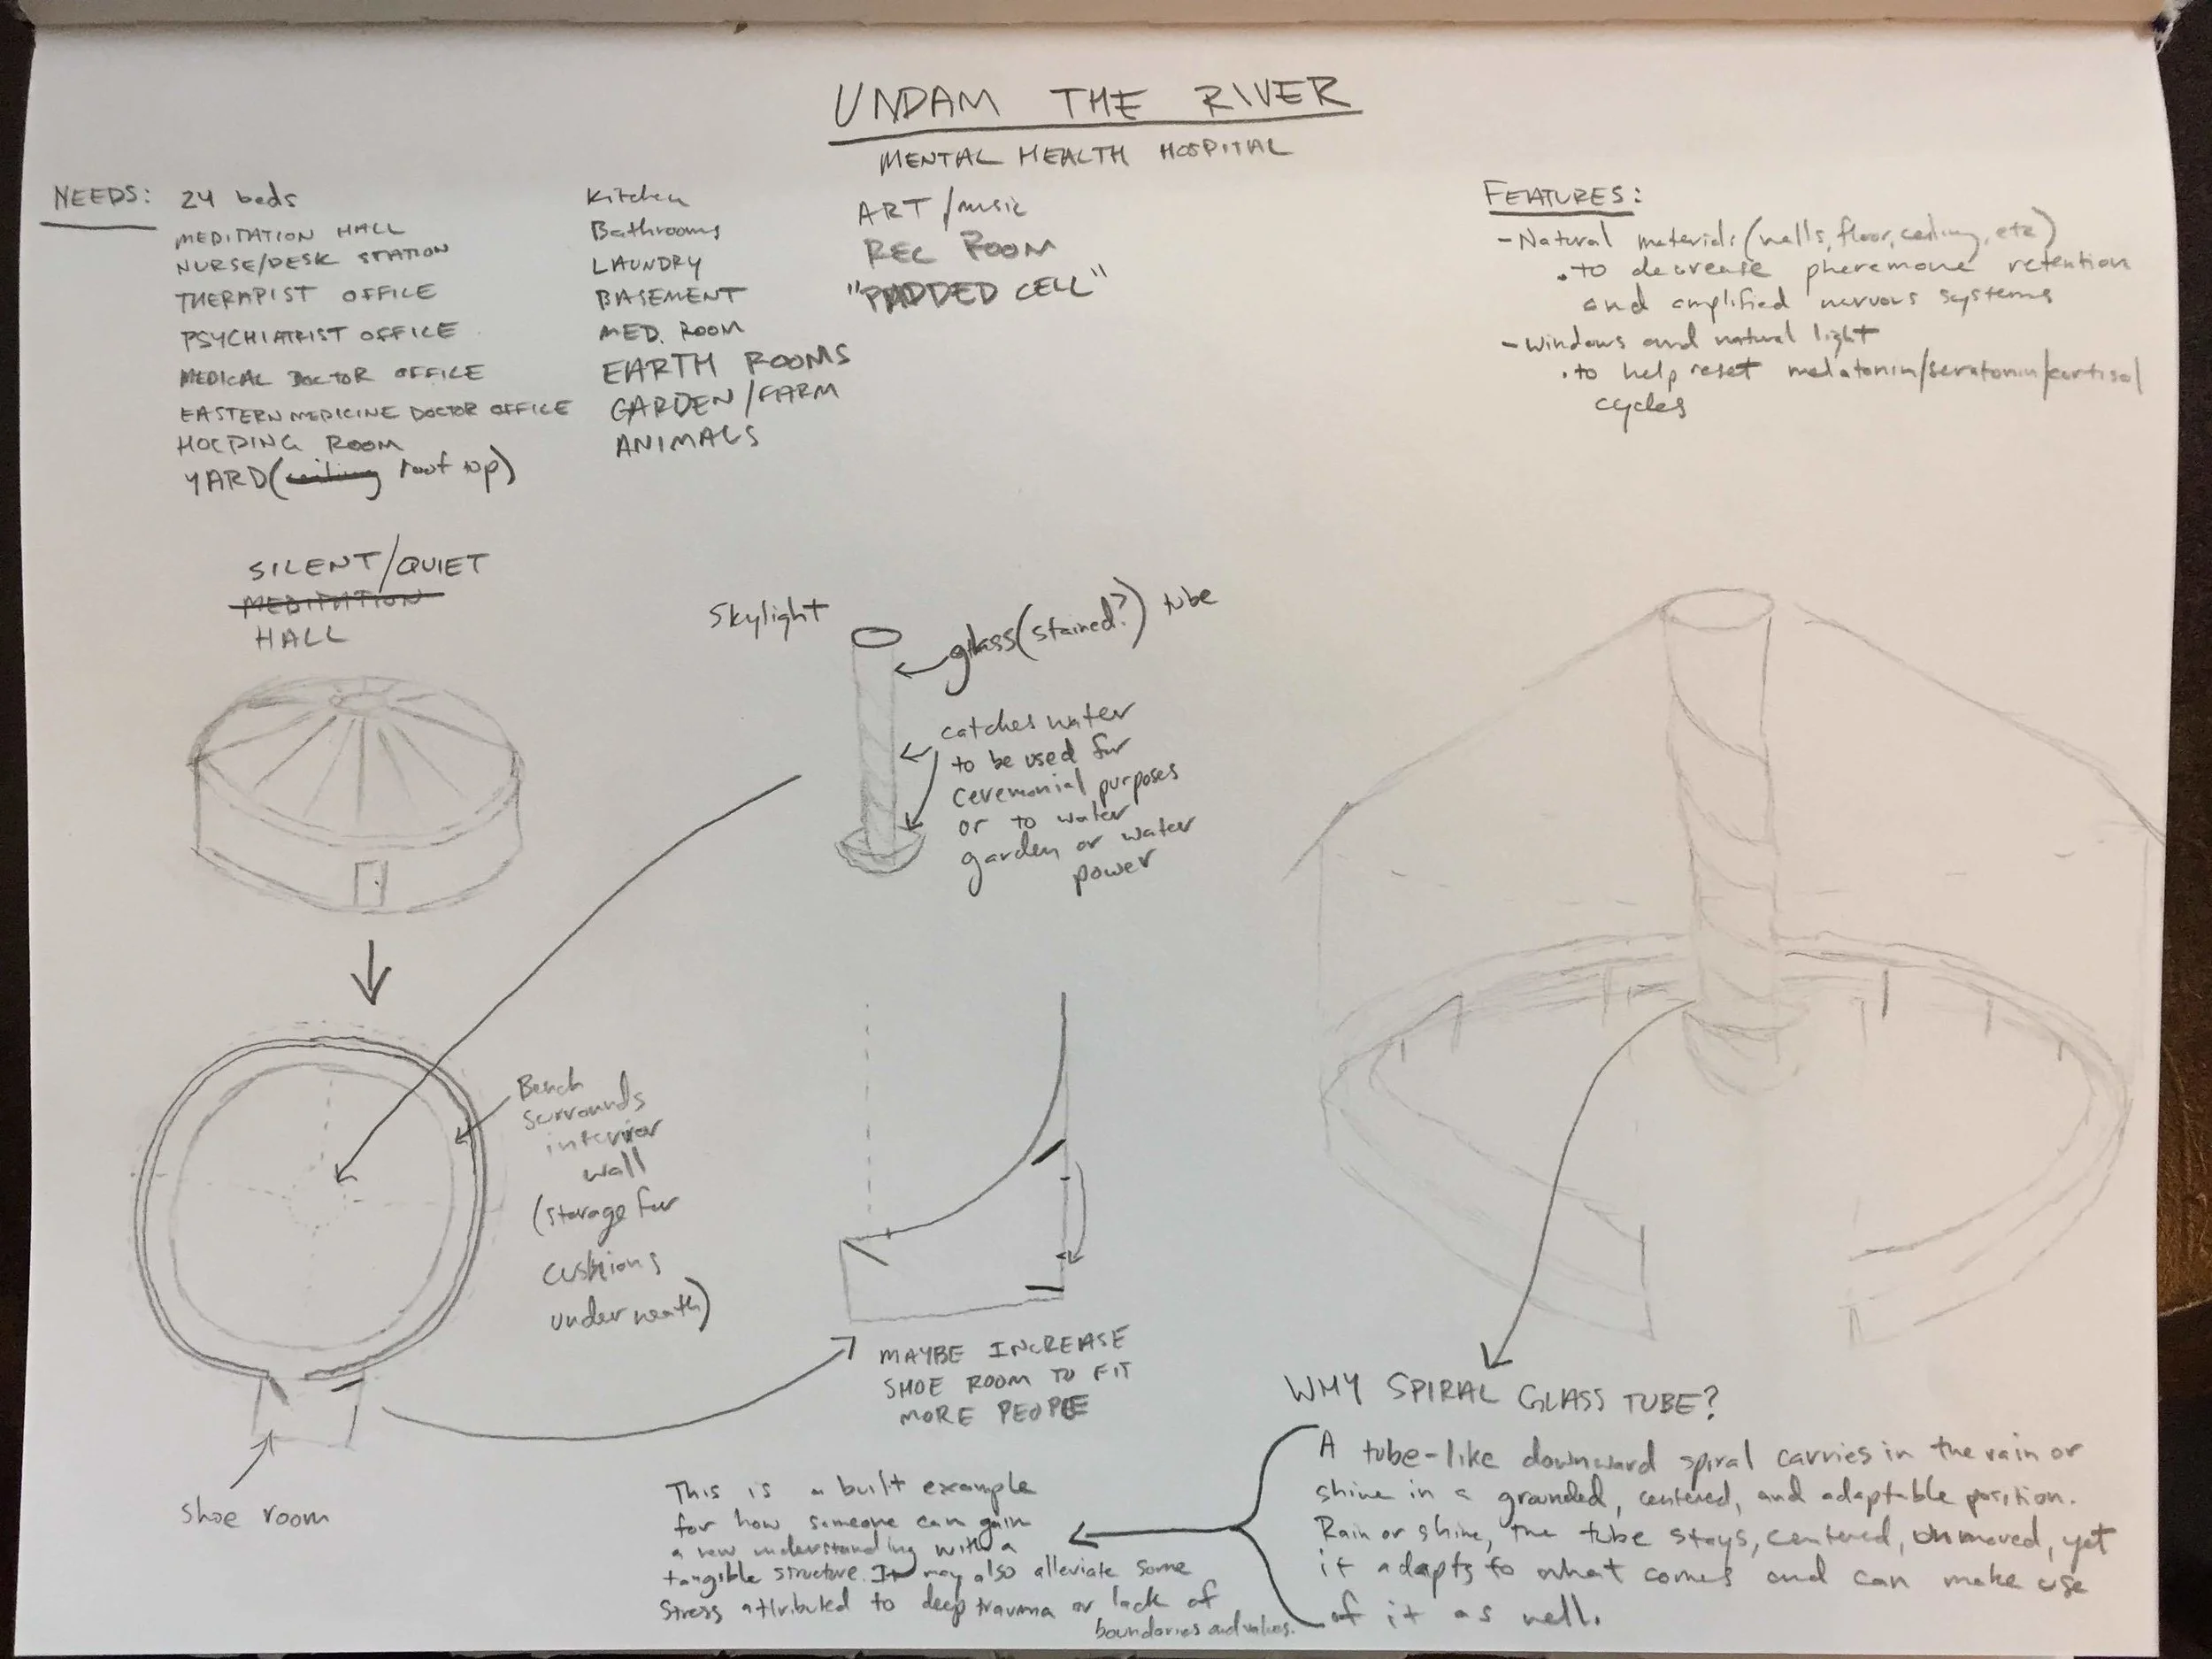 UNDAM THE RIVER
MENTAL HEALTH HOSPITAL
NEEDS:
24 beds
MEDITATION HALL
NURSE/DESK STATION
THERAPIST OFFICE
PSYCHIATRIST OFFICE
MEDICAL DOCTOR OFFICE
EASTERN MEDICINE DOCTOR OFFICE
HOLDING ROOM
YARD (ceiling roof top)
Kitchen
Bathrooms
LAUNDRY
BASEMENT
MED. ROOM
EARTH ROOMS
GARDEN/FARM
ANIMALS
ART/music
REC ROOM
"PADDED CELL"
FEATURES:
- Natural materials (walls, floor, ceiling, etc)
. to decrease pheremone retention
and amplified nervous systems
- windows and natural light
. to help reset melatonin/seratonin/cortisol
cycles
SILENT/QUIET
MEDITATION
HALL
Skylight
glass (stained?) tube
catches water
to be used for
ceremonial purposes
or to water
garden or water
power
Bench
surrounds
interior
wall
(storage for
cushions
underneath)
shoe room
MAYBE INCREASE
SHOE ROOM TO FIT
MORE PEOPLE
WHY SPIRAL GLASS TUBE?
A tube-like downward spiral carries in the rain or
shine in a grounded, centered, and adaptable position.
Rain or shine, the tube stays, centered, unmoved, yet
it adapts to what comes and can make use
of it as well.
This is a built example
for how someone can gain
a new understanding with a
tangible structure. It may also alleviate some
stress attributed to deep trauma or lack of
boundaries and values.